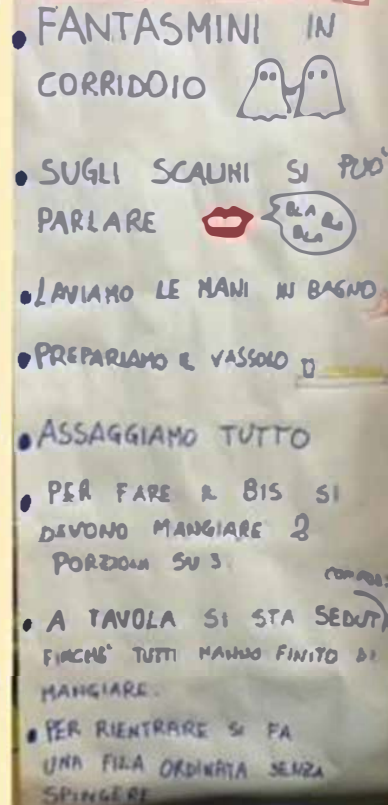 • FANTASMINI IN
CORRIDOIO
• SUGLI SCALINI SI PUÒ
PARLARE
BLA BLA
BLA
• LAVIAMO LE MANI IN BAGNO
• PREPARIAMO IL VASSOIO
• ASSAGGIAMO TUTTO
• PER FARE IL BIS SI
DEVONO MANGIARE 2
PORZIONI SU 3.
• A TAVOLA SI STA SEDUTI
FINCHÈ TUTTI HANNO FINITO DI
MANGIARE.
• PER RIENTRARE SI FA
UNA FILA ORDINATA SENZA
SPINGERE